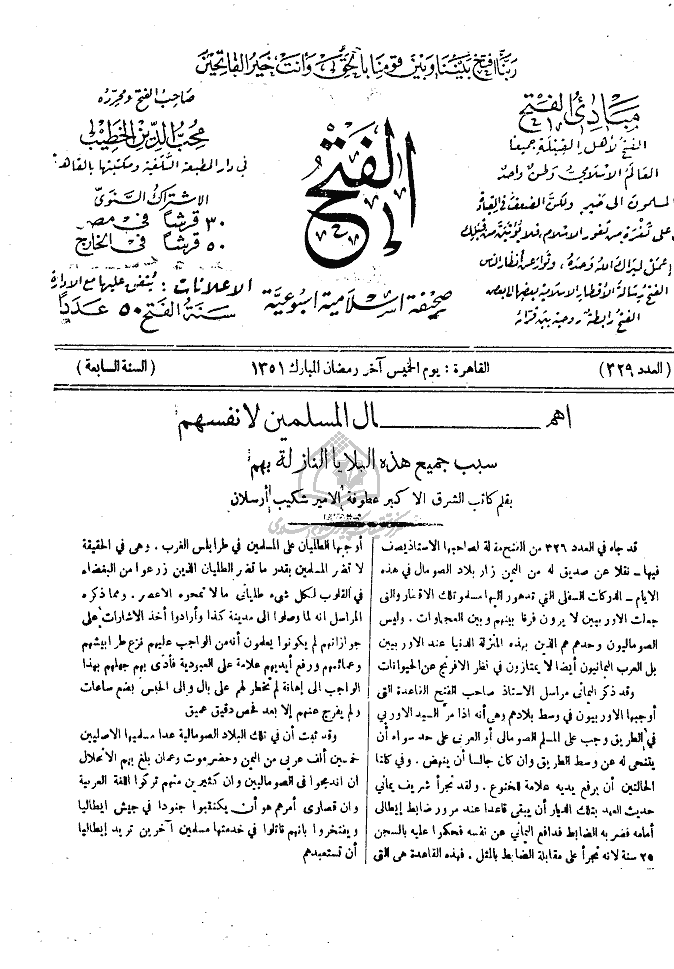 ربنا افتح بيننا وبين قومنا بالحق وأنت خير الفاتحين
مبادئ الفتح
الفتح لأهل القبلة جميعا
العالم الاسلامي وطن واحد
المسلمون الى خير ولكن الضعف في القيادة
على ثغرة من ثغور الاسلام فلا يؤتين من قبلك
اعمل ليراك الله وحده، وتوار عن أنظار الناس
الفتح رسالة الأقطار الاسلامية بعضها الى بعض
الفتح رابطة روحية بين قرائه
الفتح
صحيفة اسلامية اسبوعية
صاحب الفتح ومحرره
محب الدين الخطيب
في دار المطبعة السلفية ومكتبتها بالقاهرة
الاشتراك السنوي
٣٠ قرشا في مصر
٥٠ قرشا في الخارج
الاعلانات : يتفق عليها مع الادارة
سنة الفتح ٥٠ عددا
(العدد ٣٢٩)
القاهرة : يوم الخميس آخر رمضان المبارك ١٣٥١
(السنة السابعة)
اهمـــال المسلمين لانفسهم
سبب جميع هذه البلايا النازلة بهم
بقلم كاتب الشرق الاكبر عطوفة الامير شكيب أرسلان
قد جاء في العدد ٣٢٦ من الفتح مقالة لصاحبها الاستاذ يصف
فيها – نقلا عن صديق له من اليمن زار بلاد الصومال في هذه
الايام – الدركات السفلى التي تدهور اليها مسلمو تلك الاقطار والتي
جعلت الاوربيين لا يرون فرقا بينهم وبين العجماوات . وليس
الصوماليون وحدهم هم الذين بهذه المنزلة الدنيا عند الاوربيين
بل العرب اليمانيون أيضا لا يمتازون في نظر الافرنج عن الحيوانات
وقد ذكر اليماني مراسل الاستاذ صاحب الفتح القاعدة التي
أوجبها الاوربيون في وسط بلادهم وهي أنه اذا مر السيد الاوربي
في الطريق وجب على المسلم الصومالي أو العربي على حد سواء أن
يتنحى له عن وسط الطريق وان كان جالسا أن ينهض . وفي كلتا
الحالتين أن يرفع يديه علامة للخنوع . ولقد تجرأ شريف يماني
حديث العهد بتلك الديار أن يبقى قاعدا عند مرور ضابط إيطالي
أمامه فضربه الضابط فدافع اليماني عن نفسه فحكموا عليه بالسجن
٢٥ سنة لانه تجرأ على مقابلة الضابط بالمثل . فهذه القاعدة هي التي
أوجبها الطليان على المسلمين في طرابلس الغرب . وهي في الحقيقة
لا تضر المسلمين بقدر ما تضر الطليان الذين زرعوا من البغضاء
في القلوب لكل شيء طلياني ما لا تمحوه الاعصر . ومما ذكره
المراسل انه لما وصلوا الى مدينة كذا وأرادوا أخذ الاشارات على
جوازاتهم لم يكونوا يعلمون أنه من الواجب عليهم فزع طرابيشهم
وعمائمهم ورفع أيديهم علامة على العبودية فأدى بهم جهلهم بهذا
الواجب الى إهانة لم تخطر لهم على بال والى الحبس بضع ساعات
ولم يفرج عنهم إلا بعد فحص دقيق عميق
وقد ثبت أن في تلك البلاد الصومالية عدا مسلميها الاصليين
خمسين ألف عربي من اليمن وحضرموت وعمان بلغ بهم الانحلال
ان اندمجوا في الصوماليين وان كثيرين منهم تركوا اللغة العربية
وان قصارى أمرهم هو أن يكتتبوا جنودا في جيش ايطاليا
ويفتخروا بانهم قاتلوا في خدمتها مسلمين آخرين تريد إيطاليا
أن تستعبدهم